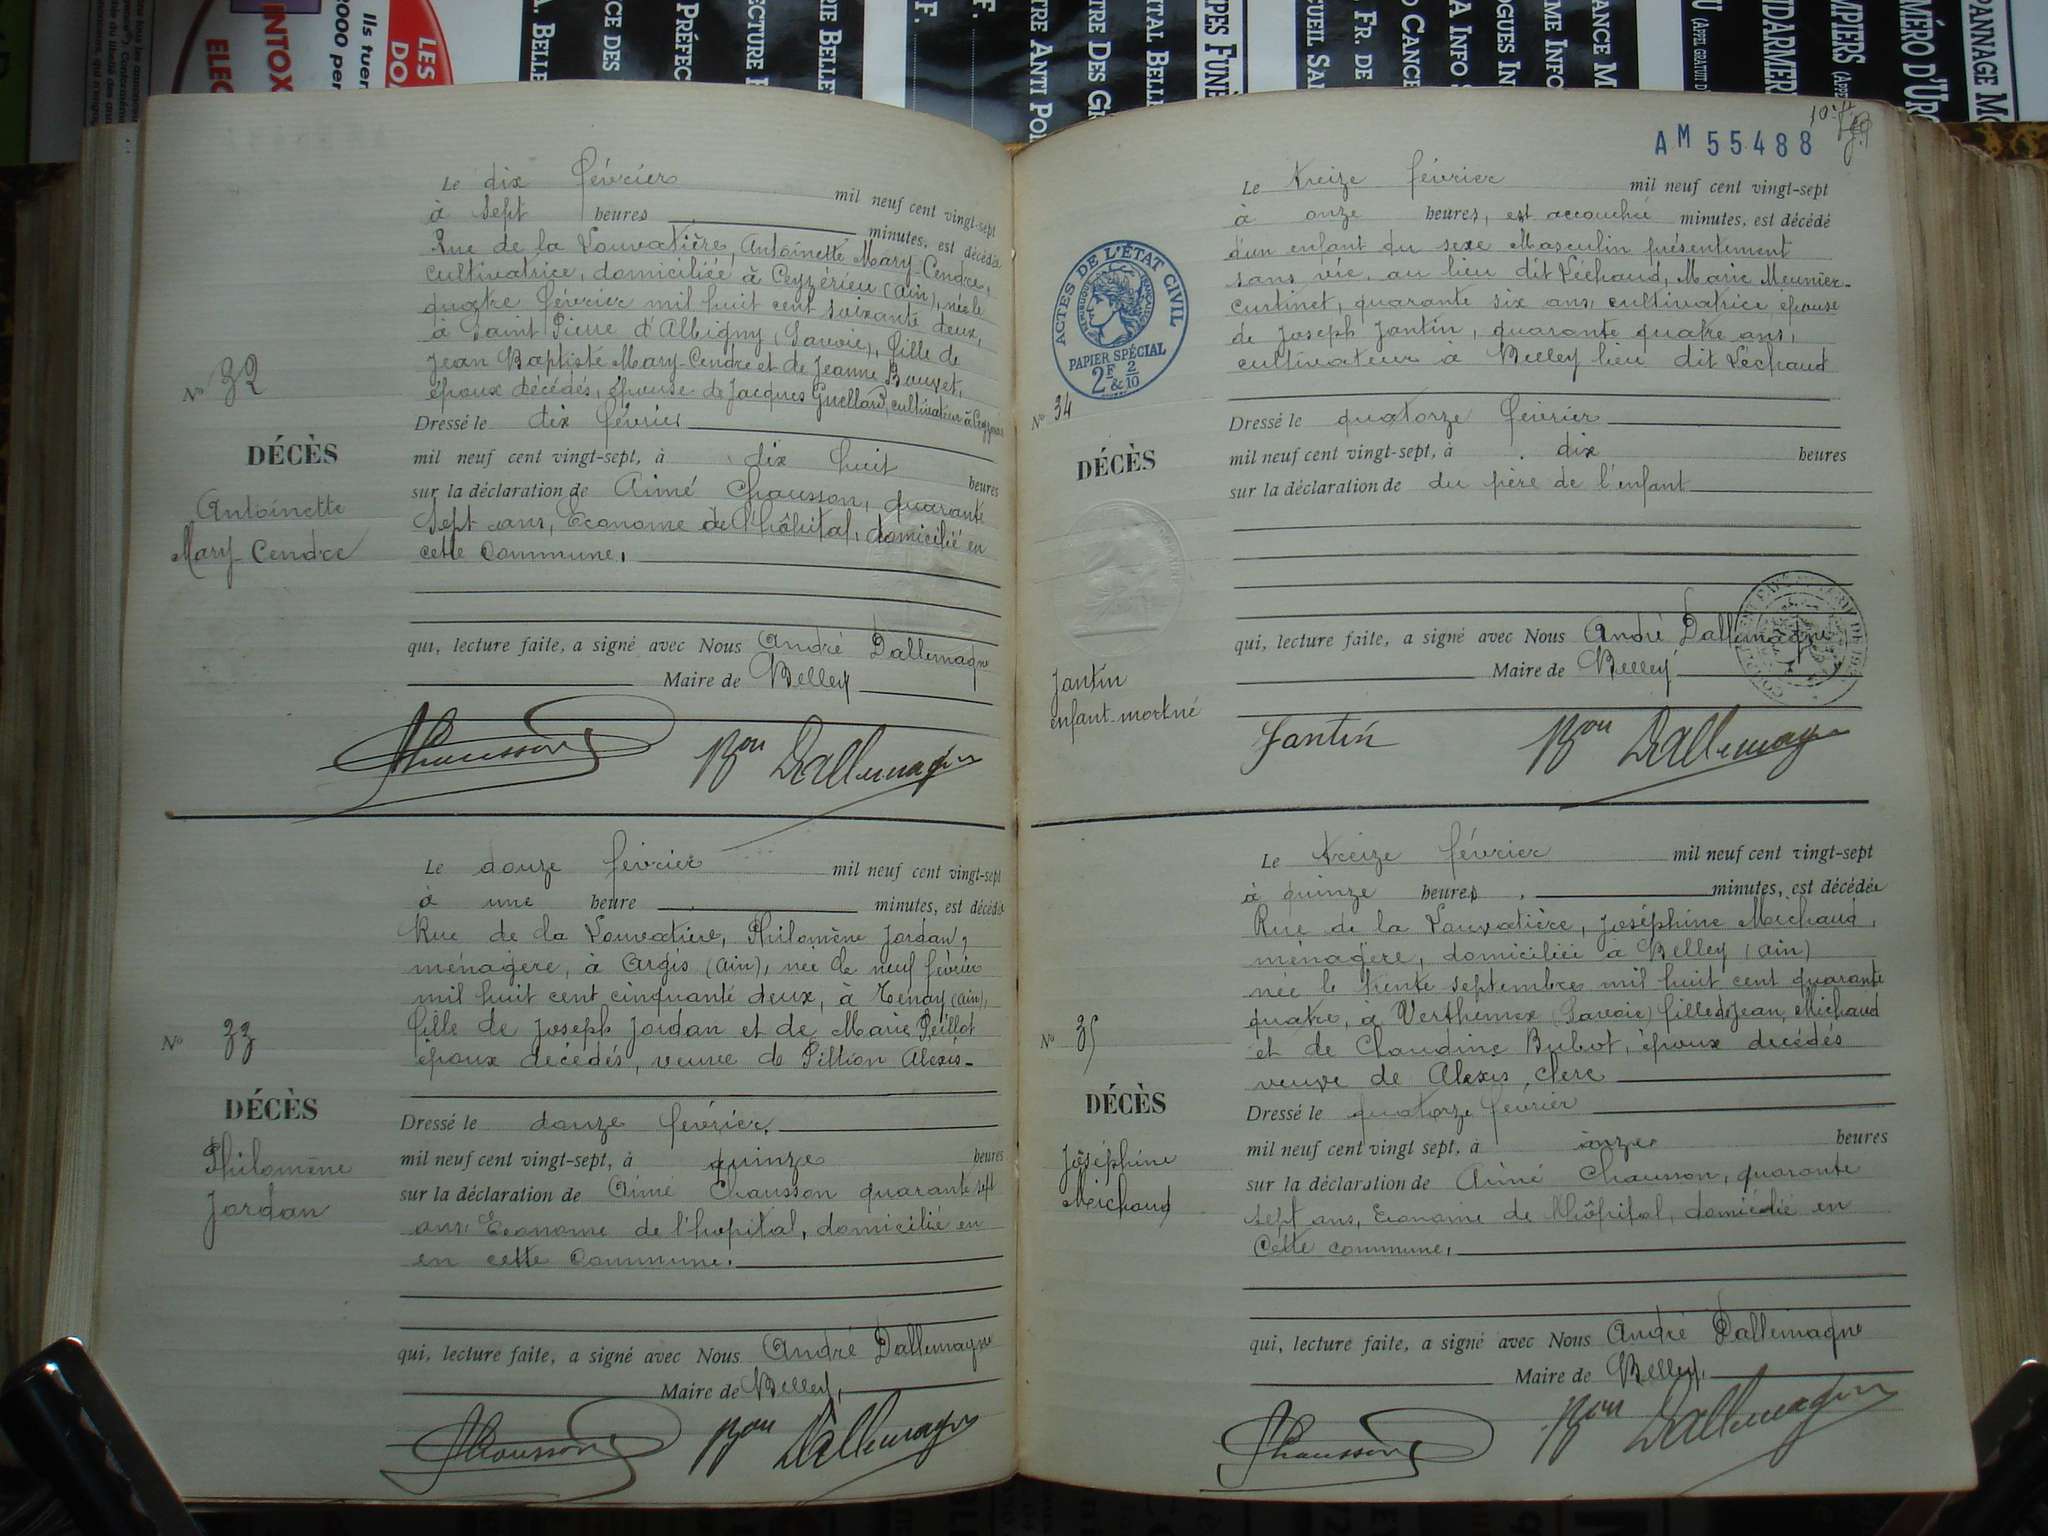 LES
DO
Ils tuer
2000 per
INTOX
ELEC
A. BELLE
CE DES
PRÉFEC
ECTURE
RIE BELLE
F.
F.
TRE ANTI
TRE DES
ITAL BELLE
PES FUNÈ
CUEIL SA
FR. DE
CANCE
A INFO
OGUES IN
ME INFO
ANCE M
U (APPEL GRATUIT D
NDARMERI
MPIERS
MÉRO D'UR
PANNAGE MO
Le dix février mil neuf cent vingt-sept
à sept heures minutes, est décédée
Rue de la Louvatière, Antoinette Mary-Cendre,
cultivatrice, domiciliée à Ceyzérieu (Ain), née le
quatre février mil huit cent soixante deux,
à Saint Pierre d'Albigny, (Savoie), fille de
Jean Baptiste Mary-Cendre et de Jeanne Bouvet,
époux décédés, épouse de Jacques Guellard, cultivateur à
N° 32
DÉCÈS
Antoinette
Mary-Cendre
Dressé le dix février
mil neuf cent vingt-sept, à dix huit heures
sur la déclaration de Aimé Chausson, quarante
sept ans, Econome de l'hôpital, domicilié en
cette Commune.
qui, lecture faite, a signé avec Nous André Dallemagne
Maire de Belley
Chausson Bon Dallemagne
Le douze février mil neuf cent vingt-sept
à une heure minutes, est décédée
Rue de la Louvatière, Philomène Jordan,
ménagère, à Argis (Ain), née le neuf février
mil huit cent cinquante deux, à Tenay (Ain),
fille de Joseph Jordan et de Marie Peillot
époux décédés, veuve de Pittion Alexis-
N° 33
DÉCÈS
Philomène
Jordan
Dressé le douze février
mil neuf cent vingt-sept, à quinze heures
sur la déclaration de Aimé Chausson quarante sept
ans, Econome de l'hôpital, domicilié en
en cette Commune.
qui, lecture faite, a signé avec Nous André Dallemagne
Maire de Belley,
Chausson Bon Dallemagne
AM 55488
Le treize février mil neuf cent vingt-sept
à onze heures, est accouchée minutes, est décédé
d'un enfant du sexe Masculin présentement
sans vie, au lieu dit Léchaud, Marie Meunier-
Curtinet, quarante six ans, cultivatrice épouse
de Joseph Jantin, quarante quatre ans,
cultivateur à Belley lieu dit Lechaud
ACTES DE L'ÉTAT CIVIL
RÉPUBLIQUE FRANÇAISE
PAPIER SPÉCIAL
2F & 2/10
N° 34
DÉCÈS
Jantin
enfant mort né
Dressé le quatorze février
mil neuf cent vingt-sept, à dix heures
sur la déclaration de du père de l'enfant
qui, lecture faite, a signé avec Nous André Dallemagne
Maire de Belley
Jantin Bon Dallemagne
Le treize février mil neuf cent vingt-sept
à quinze heures, minutes, est décédée
Rue de la Louvatière, Joséphine Michaud,
ménagère, domiciliée à Belley (Ain)
née le trente septembre mil huit cent quarante
quatre, à Verthemex (Savoie) fille de Jean Michaud
et de Claudine Bubot, époux décédés
veuve de Alexis Clerc
N° 35
DÉCÈS
Joséphine
Michaud
Dressé le quatorze février
mil neuf cent vingt sept, à onze heures
sur la déclaration de Aimé Chausson, quarante
sept ans, Econome de l'hôpital, domicilié en
Cette commune.
qui, lecture faite, a signé avec Nous André Dallemagne
Maire de Belley,
Chausson Bon Dallemagne